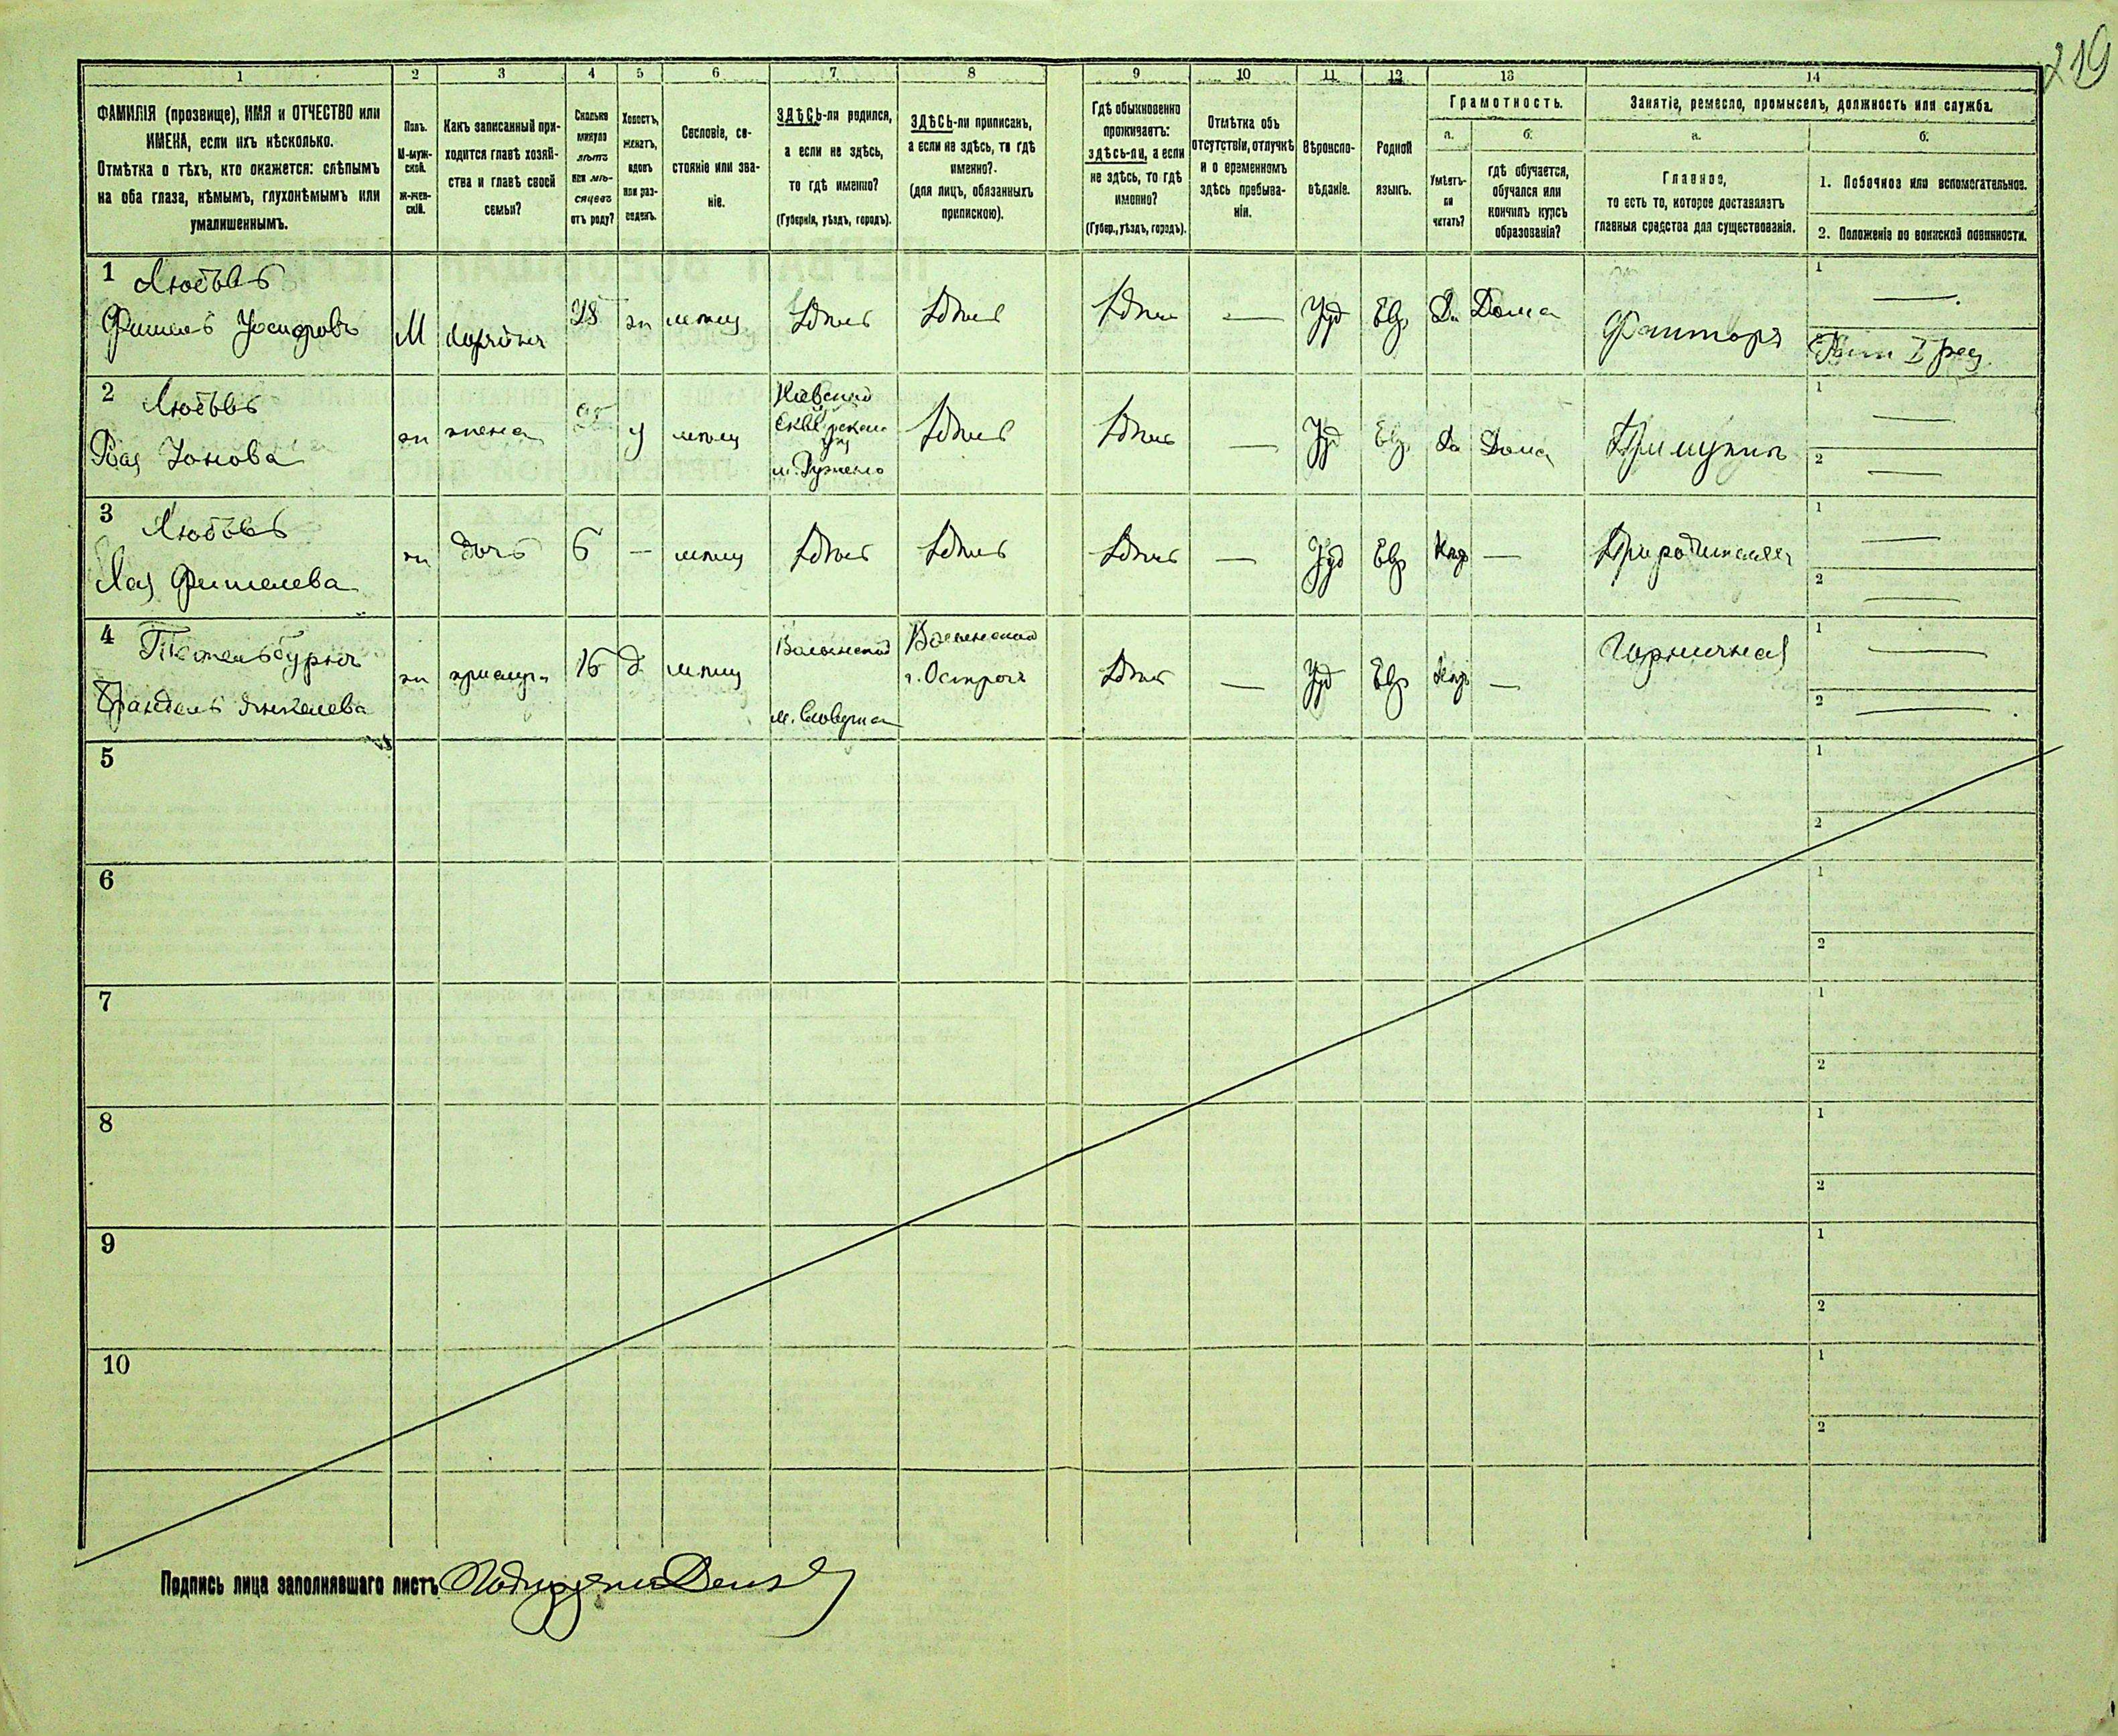 219
1
2
3
4
5
6
7
8
9
10
11
12
13
14
ФАМИЛІЯ (прозвище), ИМЯ и ОТЧЕСТВО или
ИМЕНА, если ихъ нѣсколько.
Отмѣтка о тѣхъ, кто окажется: слѣпымъ
на оба глаза, нѣмымъ, глухонѣмымъ или
умалишеннымъ.
Полъ.
М-муж-
ской.
Ж-жен-
скій.
Какъ записанный при-
ходится главѣ хозяй-
ства и главѣ своей
семьи?
Сколько
минуло
лѣтъ
или мѣ-
сяцевъ
отъ роду?
Холостъ,
женатъ,
вдовъ
или раз-
веденъ.
Сословіе, со-
стояніе или зва-
ніе.
ЗДѢСЬ-ли родился,
а если не здѣсь,
то гдѣ именно?
(Губернія, уѣздъ, городъ).
ЗДѢСЬ-ли приписанъ,
а если не здѣсь, то гдѣ
именно?
(для лицъ, обязанныхъ
припискою).
Гдѣ обыкновенно
проживаетъ:
здѣсь-ли, а если
не здѣсь, то гдѣ
именно?
(Губер., уѣздъ, городъ).
Отмѣтка объ
отсутствіи, отлучкѣ
и о временномъ
здѣсь пребыва-
ніи.
Вѣроиспо-
вѣданіе.
Родной
языкъ.
Грамотность.
а.
Умѣетъ-
ли
читать?
б.
гдѣ обучается,
обучался или
кончилъ курсъ
образованія?
Занятіе, ремесло, промыселъ, должность или служба.
а.
Главное,
то есть то, которое доставляетъ
главныя средства для существованія.
б.
1. Побочное или вспомогательное.
2. Положеніе по воинской повинности.
1 Любовь
Фишель
М
28
ж
мѣщ
Здѣсь
Здѣсь
Здѣсь
—
Іуд
Евр
Да
Дома
Факторъ
1 —
2
2 Любовь
ж
жена
мѣщ
Кіевской
Сквирскаго
у
м. Ружино
Здѣсь
Здѣсь
—
Іуд
Евр
Да
Дома
При мужѣ
1 —
2 —
3 Любовь
Хая Фишелева
ж
дочь
6
—
мѣщ
Здѣсь
Здѣсь
Здѣсь
—
Іуд
Евр
Нѣтъ
—
При родителяхъ
1 —
2 —
4
Янкелева
ж
прислуга
16
д
мѣщ
Волынской
м. Словечна
Волынской
г. Острогъ
Здѣсь
—
Іуд
Евр
Нѣтъ
—
Горничная
1 —
2 —
5
1
2
6
1
2
7
1
2
8
1
2
9
1
2
10
1
2
Подпись лица заполнявшаго листъ